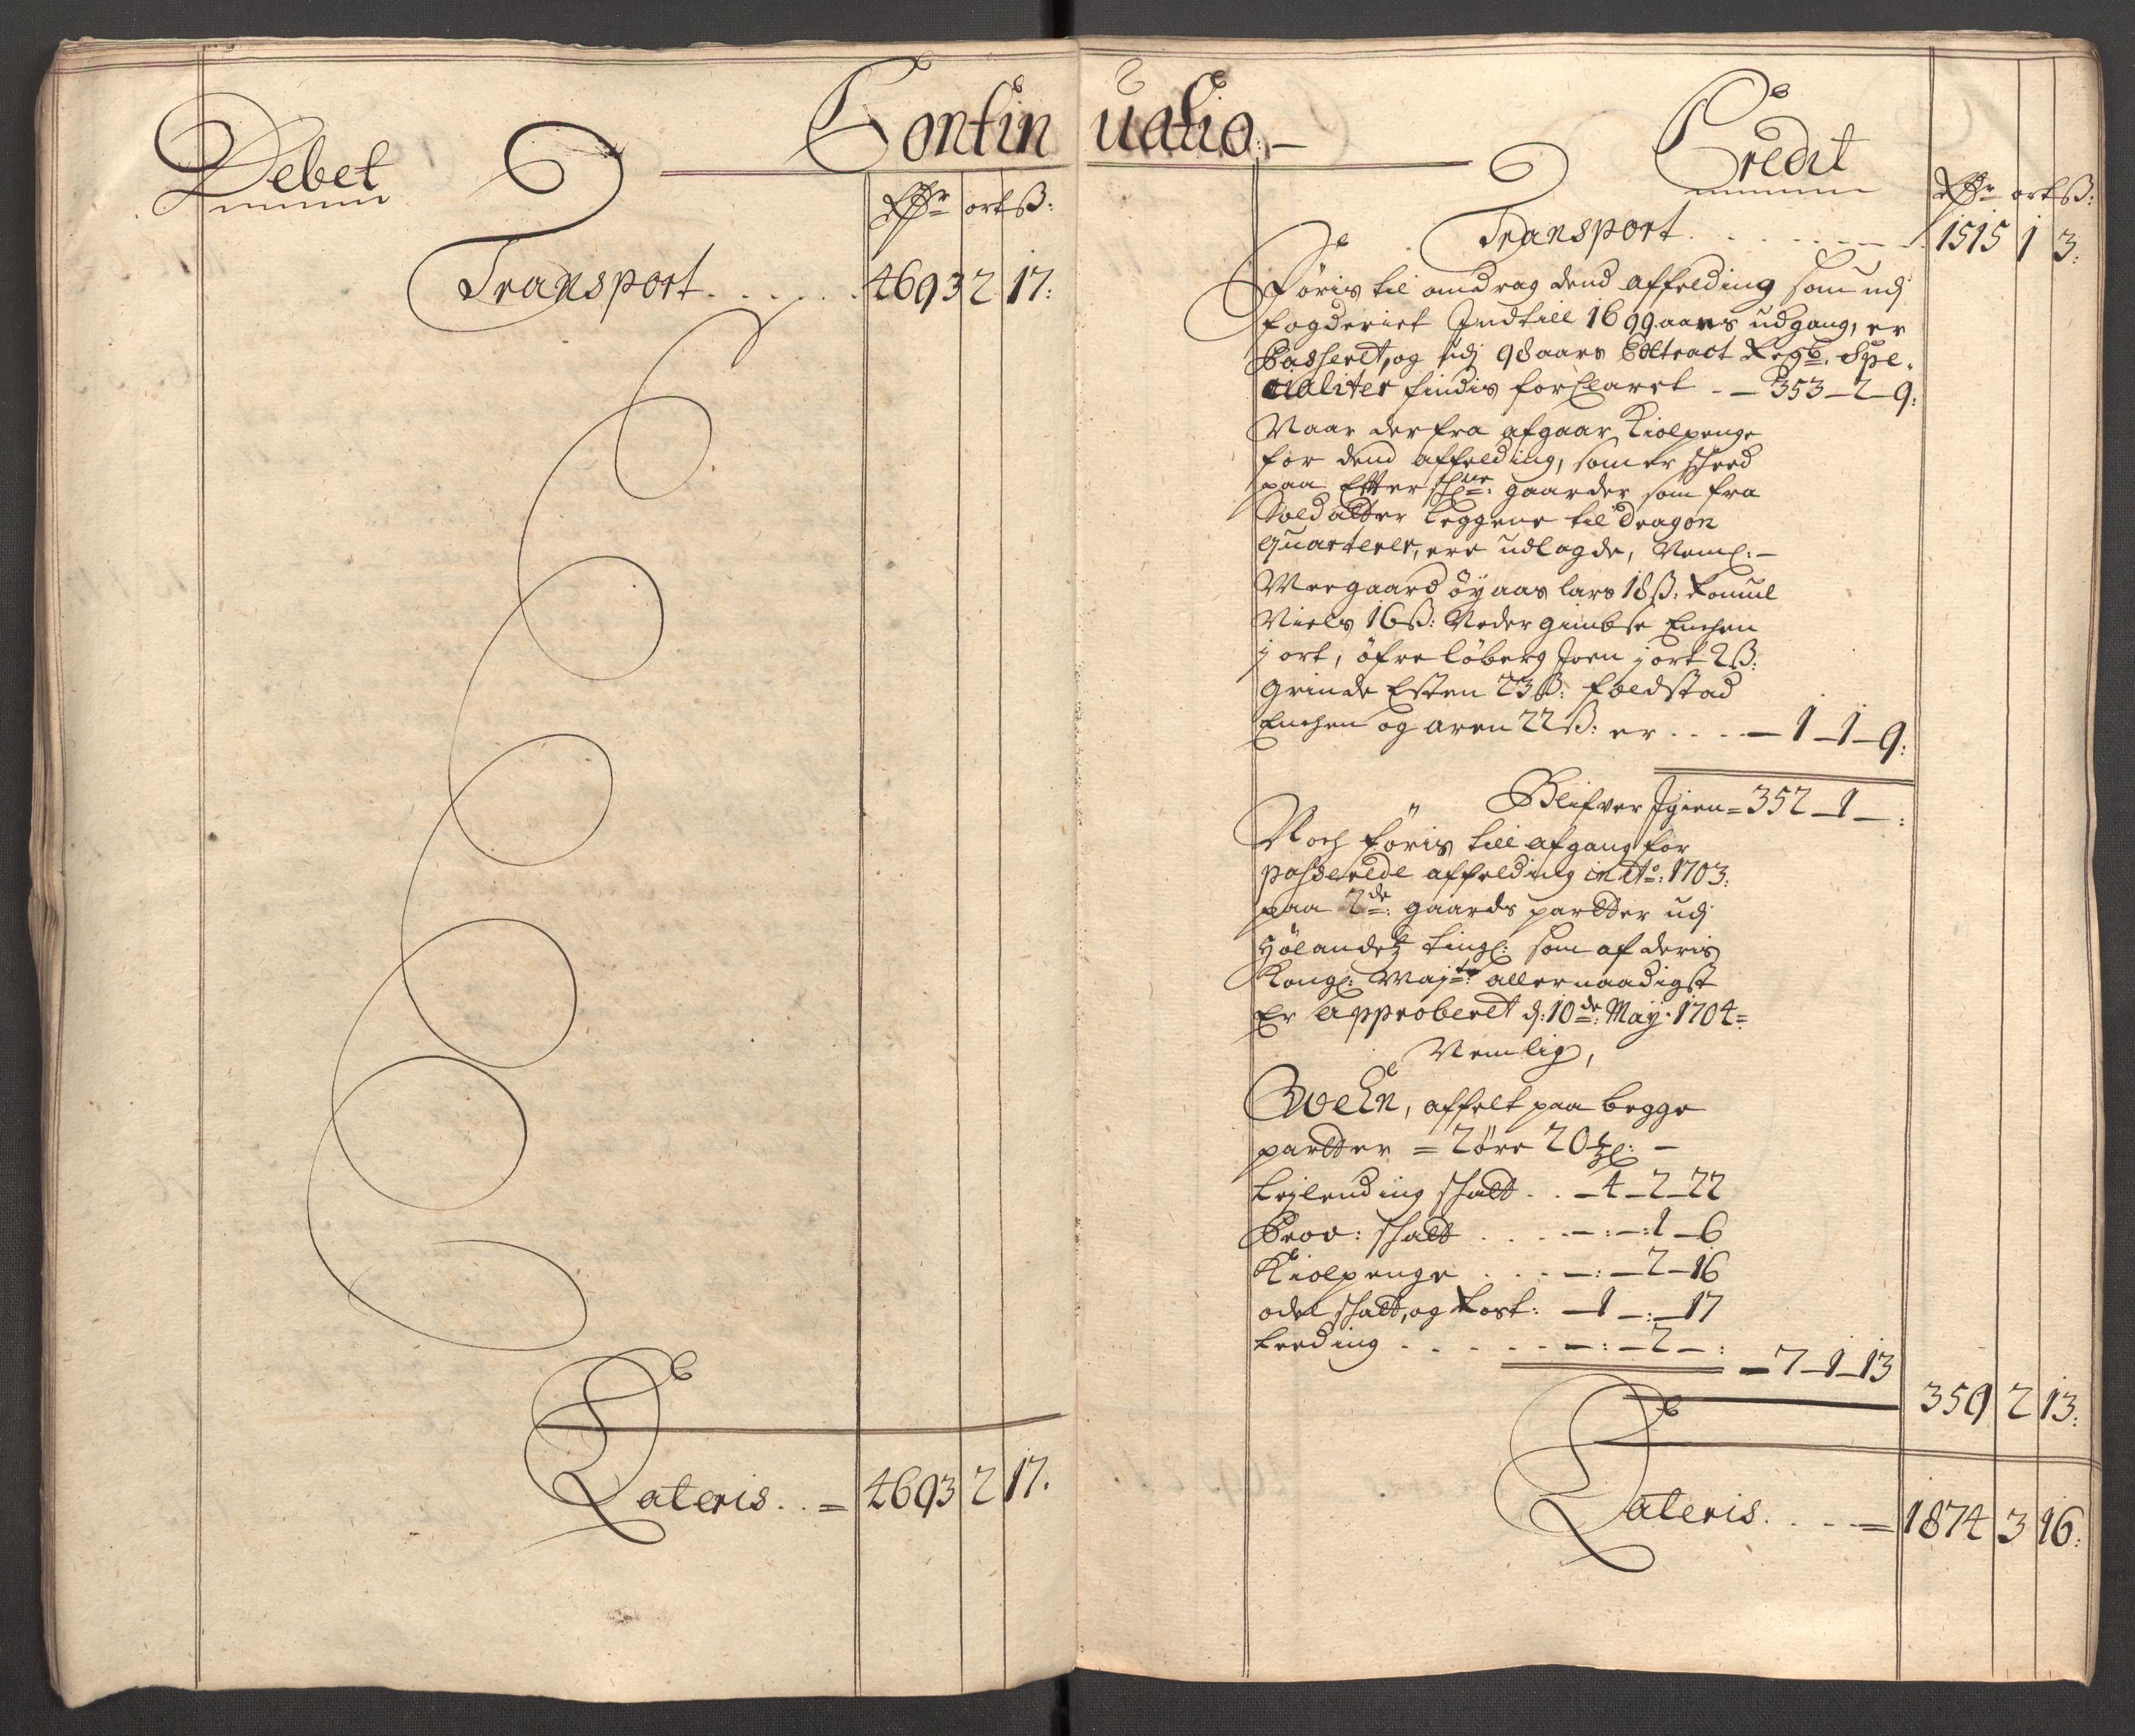 Continuatio
Debet
Rdr ort ß:
Transport . . . . . 4693 2 17:
Lateris . . = 4693 2 17.
Credit
Rdr ort ß:
Transport . . . . . 1515 1 3:
Föris til andrag dend affelding som udj
fogderiet Indtill 1699 aars udgang, er
Passeret, og udj 98 aars Extract Regb. Spe-
cialiter findis forclaret - - 353 - 2 - 9:
Naar der fra afgaar Kiolpenge
for dend affelding, som er scheed
paa Effterschne: gaarder som fra
Soldatter Leggene til Dragon
quarterer, ere udlagde, Neml: -
Meegaard öyaas lars 18 ß: Romul
Niels 16 ß: Neder gimbse Enchen
j ort, öfre löberg Joen j ort 2 ß:
Grinde Esten 23 ß: Foldstad
Enchen og aren 22 ß: er . . . . - 1 - 1 - 9:
Blifver Igien = 352 - 1 - :
Noch föris till afgang for
passerede affelding in Ao: 1703:
paa 2de: gaards partter udj
Hölandetz tingl: som af deris
Kongl: Mayts: allernaadigst
Er approberet d: 10de: Maij 1704 =
Nemlig,
Woln, affelt paa begge
partter = 2 öre 20 
Leylending schatt . . - 4 - 2 - 22
Prov: schatt . . . . - : - : 1 - 6
Kiolpenge . . . - : - 2 - 16
odel schatt, og Kost: - 1 - : - 17
Leeding . . . . . - : - 2 - :
- 7 - 1 - 13
359 2 13:
Lateris . . . . = 1874 3 16: